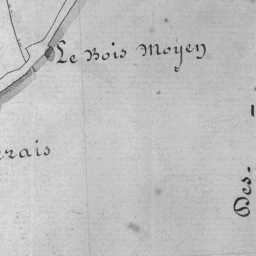 Le Bois Moyen
erais
Des-